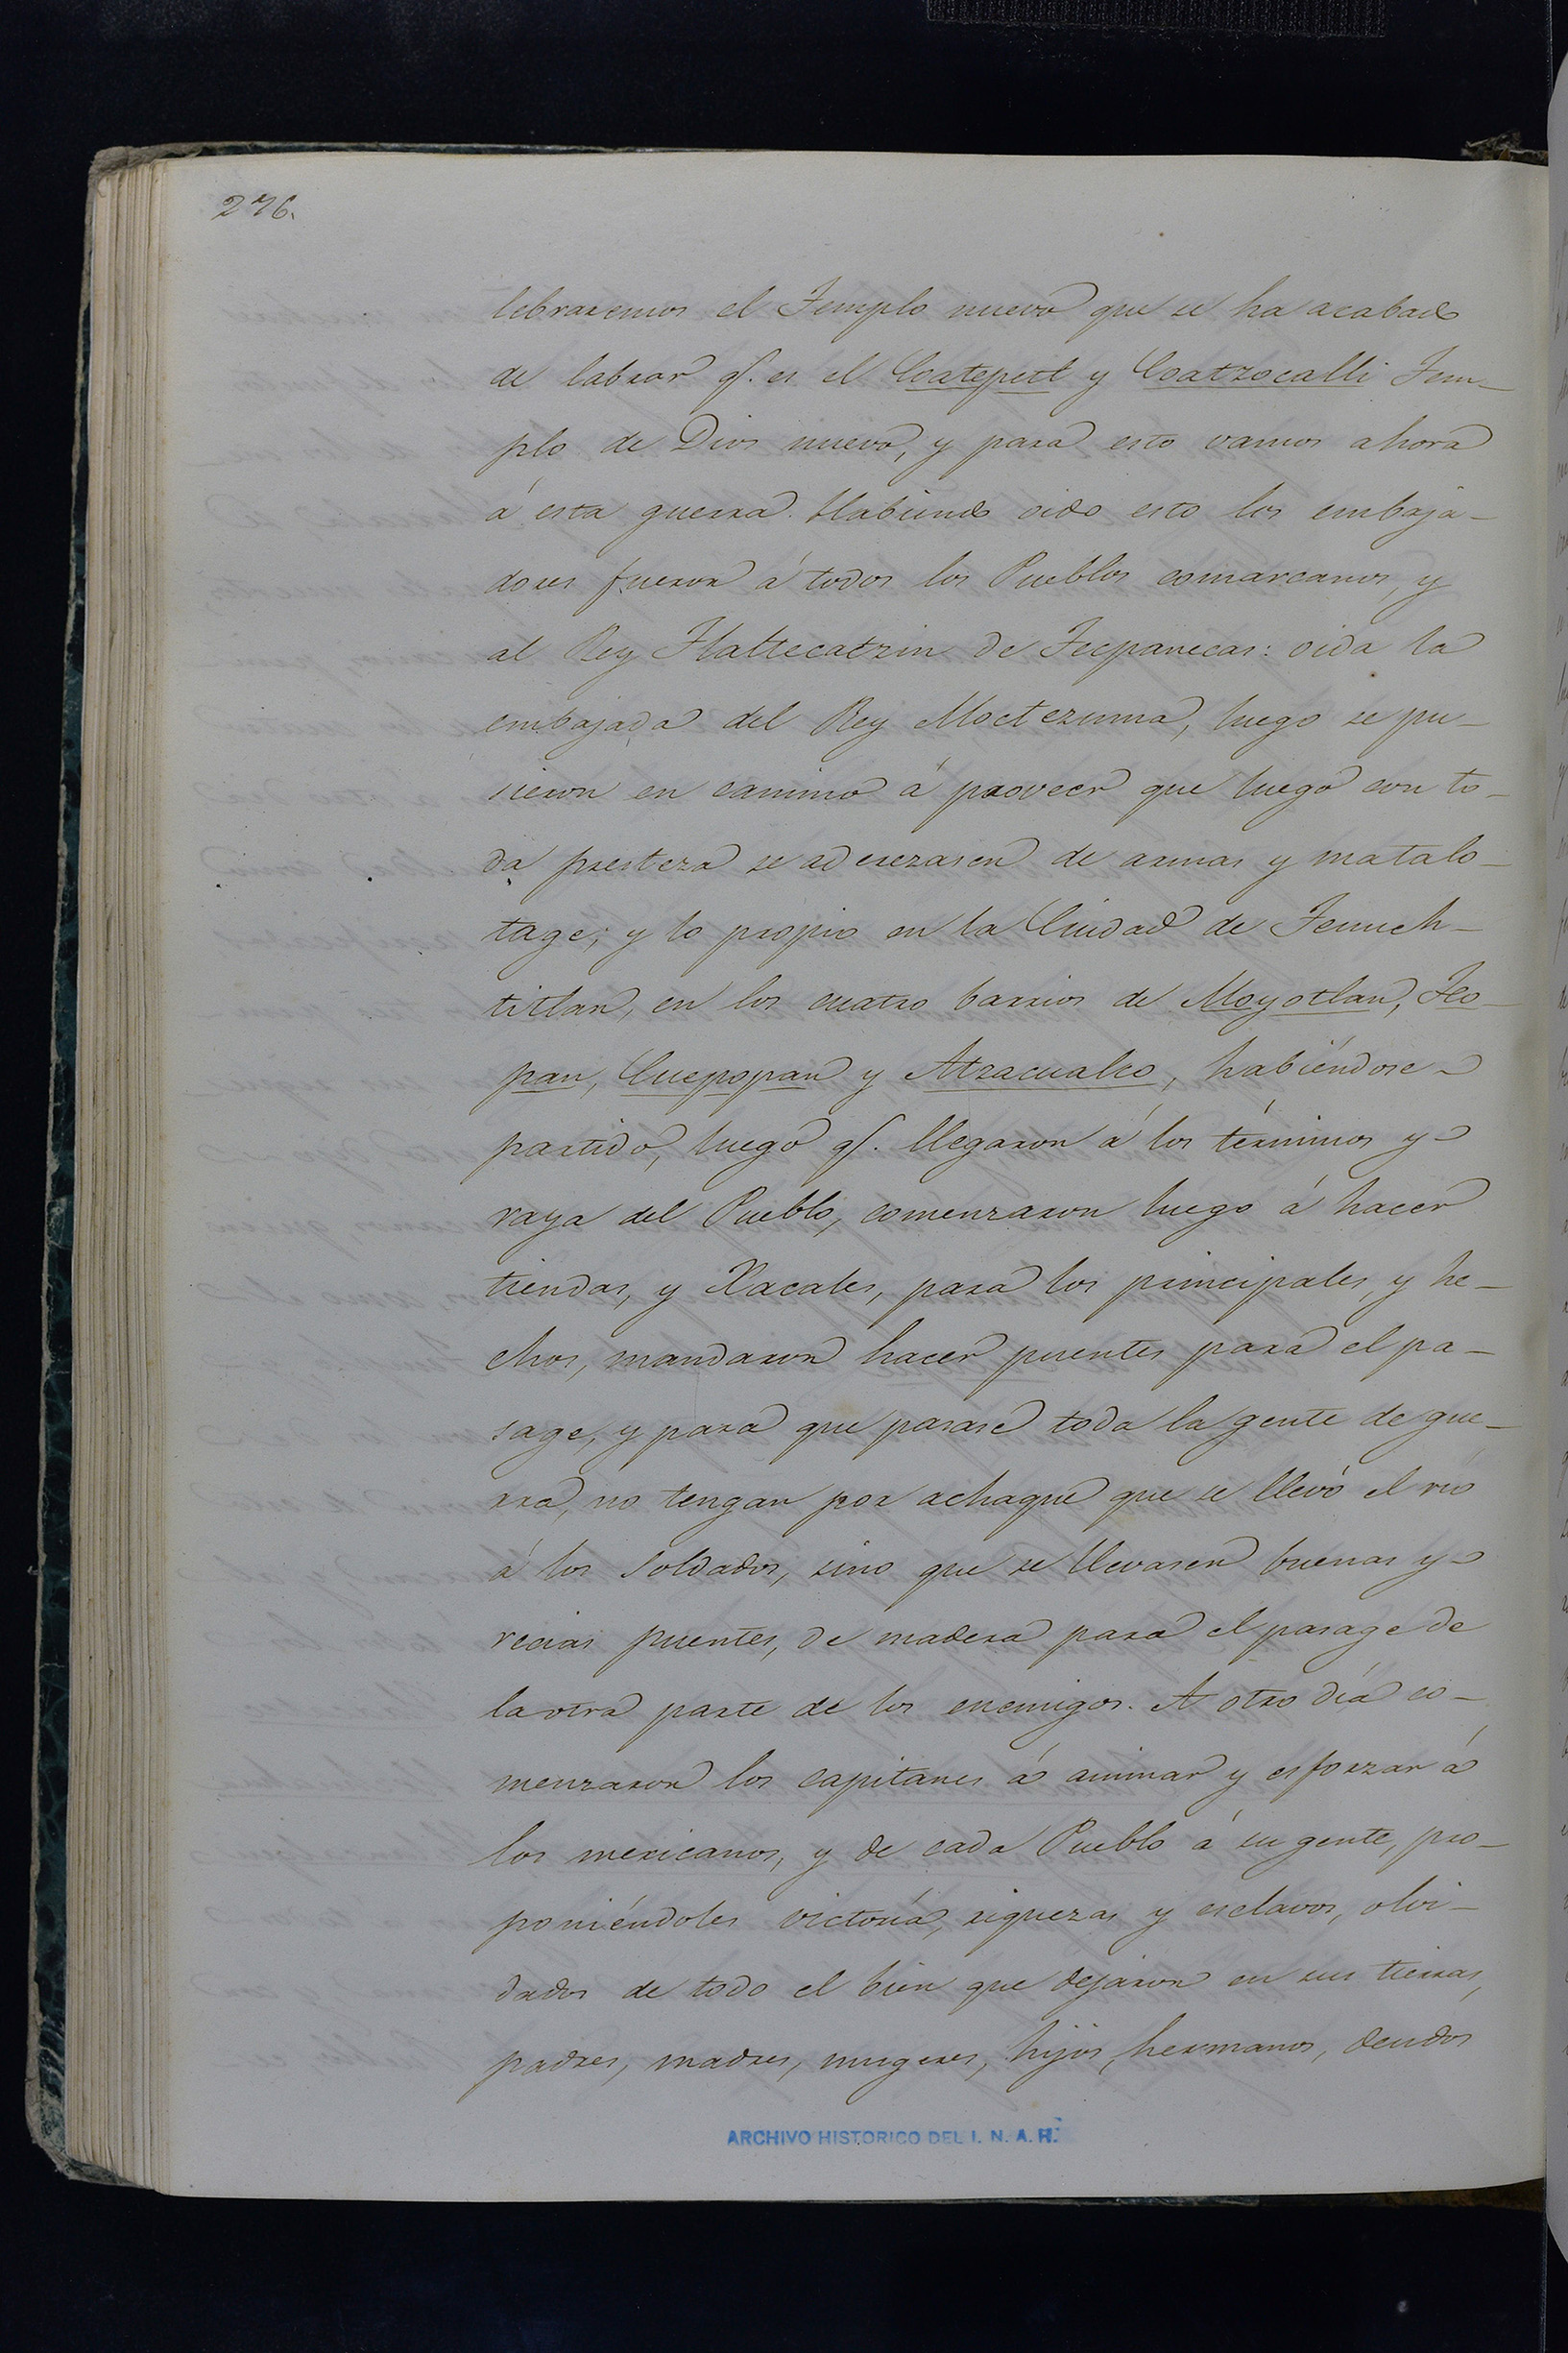 276.
lebraremos el Templo nuevo que se ha acabado
de labrar q.e es el Coatepetl y Coatzocalli Tem-
plo de Dios nuevo, y para esto vamos ahora
á esta guerra. Habiendo oido esto los embaja-
dores fueron á todos los Pueblos comarcanos, y
al Rey Tlaltecatzin de Tecpanecas: oida la
embajada del Rey Moctezuma, luego se pu-
sieron en camino á proveer que luego con to-
da presteza se aderezasen de armas y matalo-
tage; y lo propio en la Ciudad de Tenuch-
titlan, en los cuatro barrios de Moyotlan, Teo-
pan, Cuepopan y Atzacualco, habiéndose
partido, luego q.e llegaron á los términos y
raya del Pueblo, comenzaron luego á hacer
tiendas, y Xacales, para los principales, y he-
chos, mandaron hacer puentes para el pa-
sage, y para que pasase toda la gente de gue-
rra, no tengan por achaque que se llevó el río
á los soldados, sino que se llevasen buenas y
recias puentes, de madera para el pasage de
la otra parte de los enemigos. A otro día co-
menzaron los capitanes á animar y esforzar á
los mexicanos, y de cada Pueblo á su gente, pro-
poniéndoles victoria, riquezas y esclavos, olvi-
dados de todo el bien que dejaron en sus tierras,
padres, madres, mugeres, hijos, hermanos, deudos
ARCHIVO HISTORICO DEL I. N. A. H.